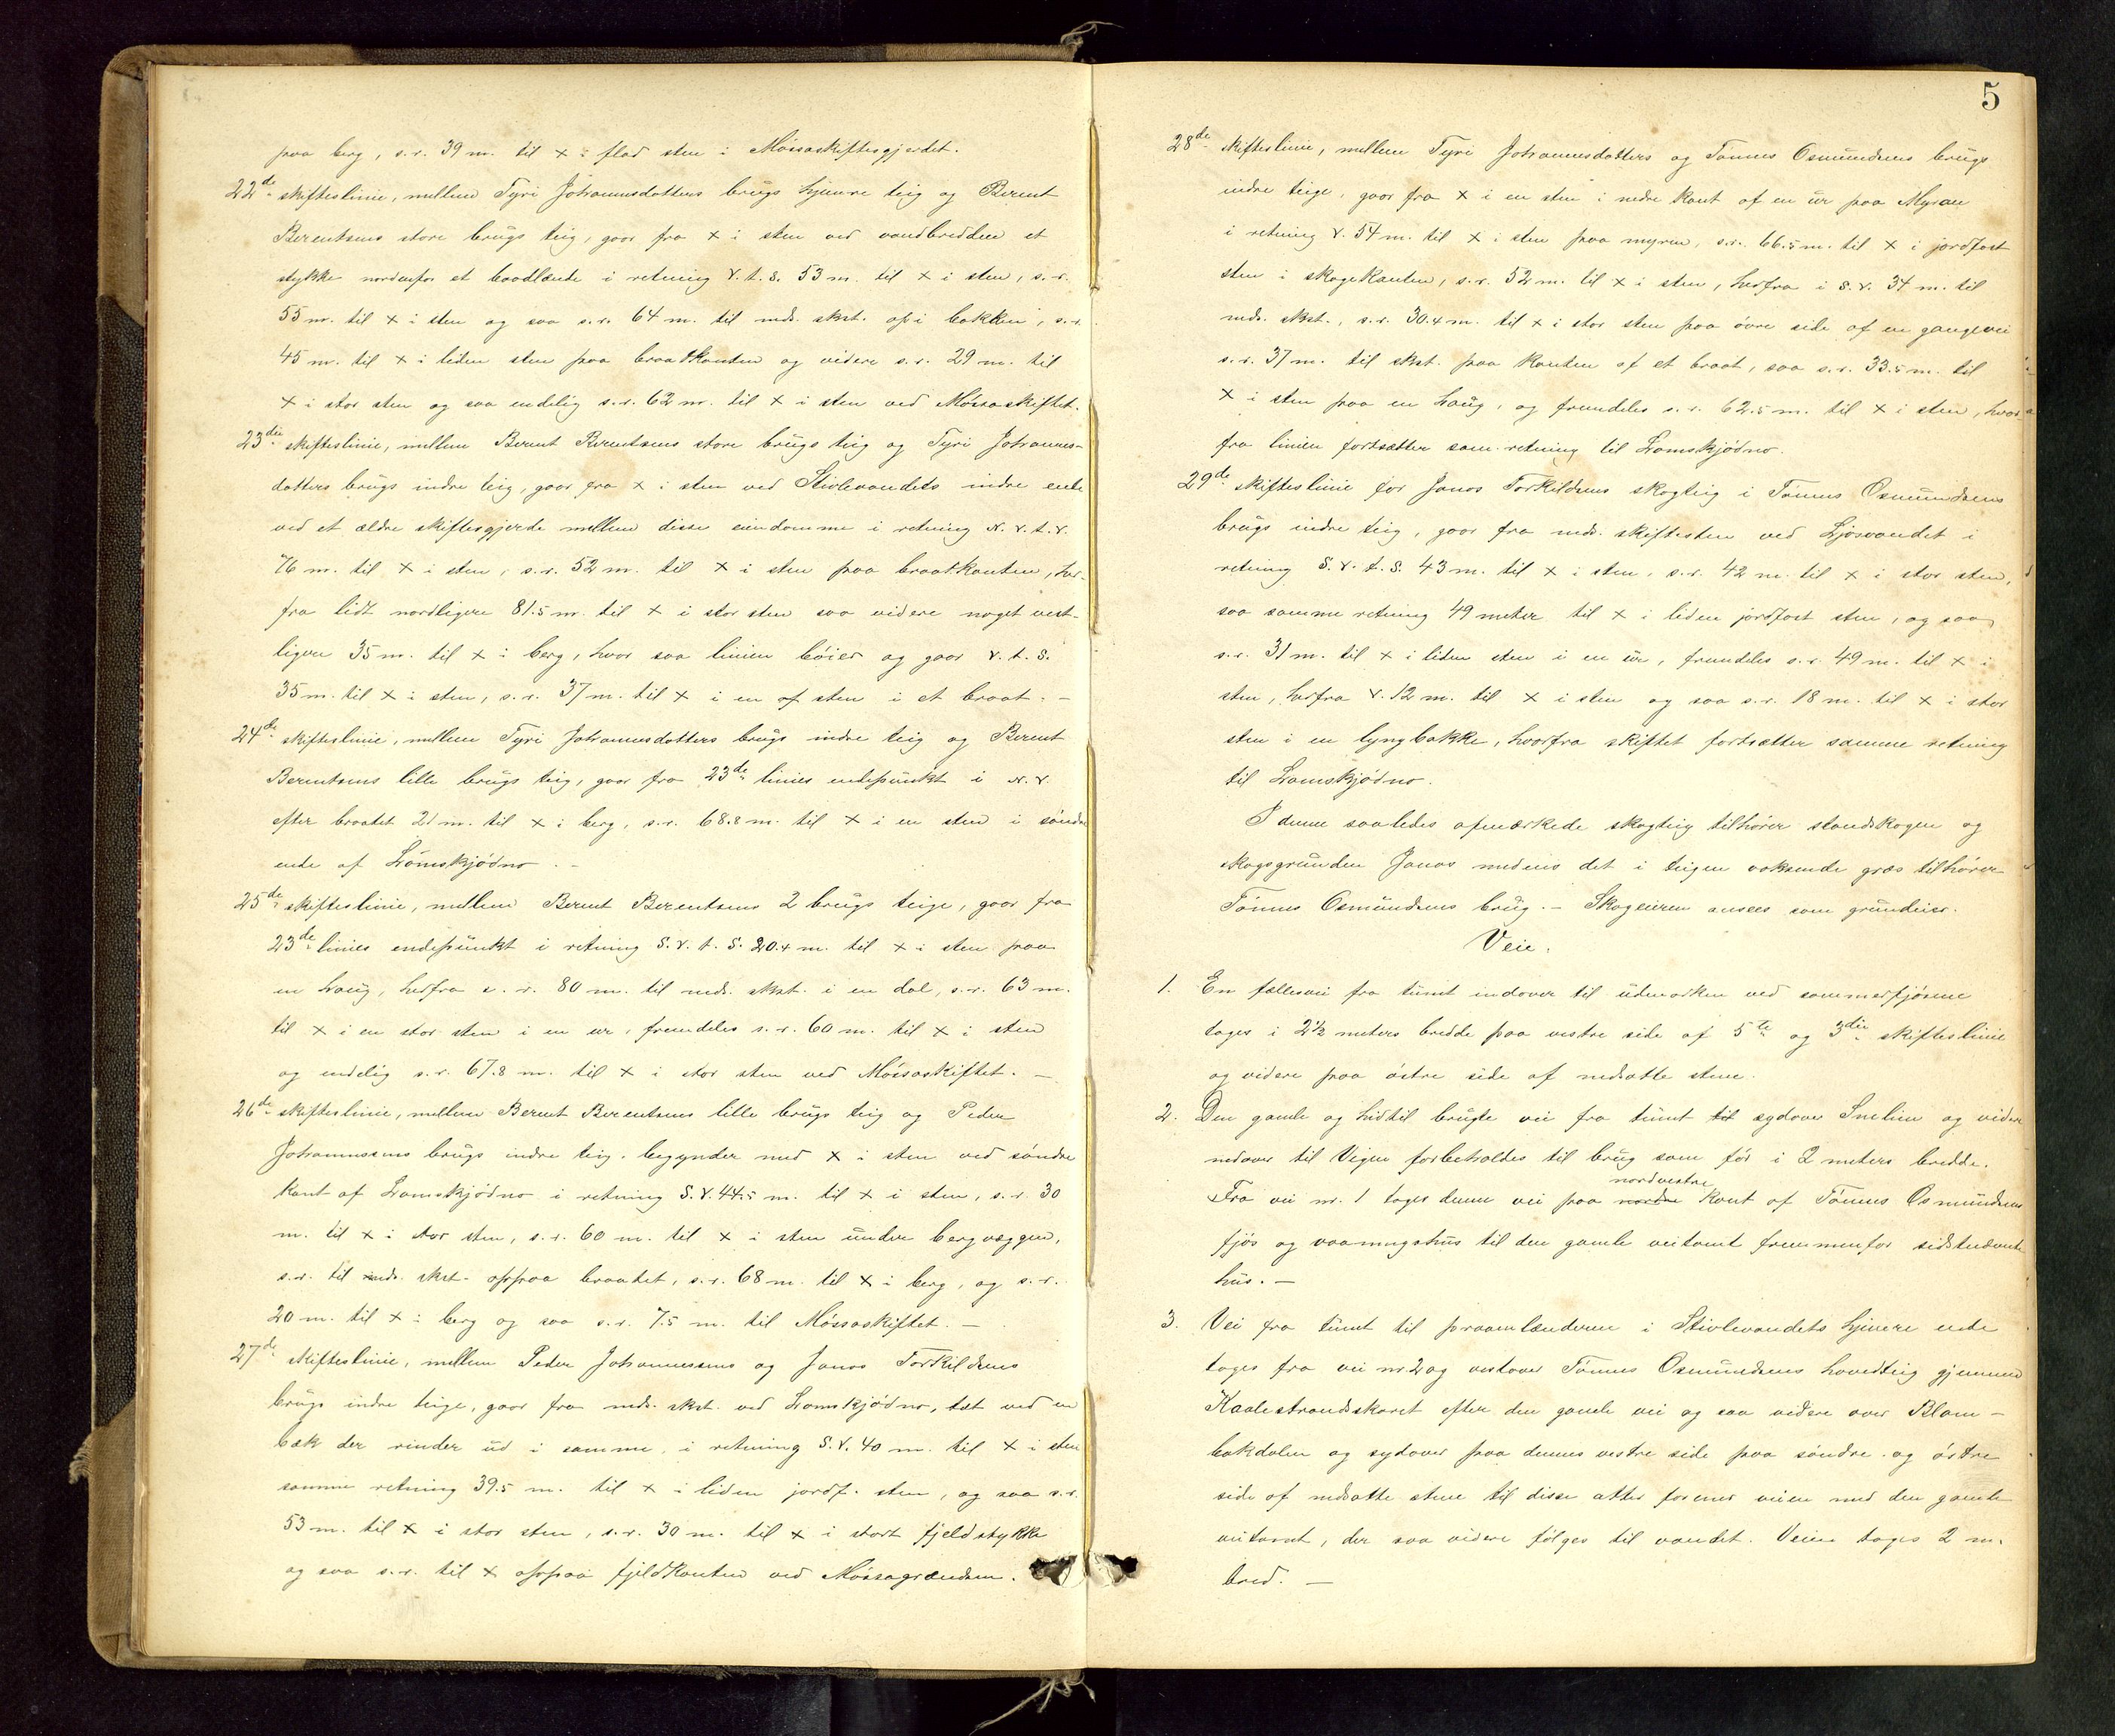 paa berg, s.r. 39 m. til × i flad sten i Mössaskiftesgjerdet.
22de skifteslinie, mellem Tyri Johannesdatters brugs hjemre teig og Berent
Berentsens store brugs teig, gaar fra × i sten ved vandbredden et
stykke nordenfor et baadlænde i retning V.t.S. 53 m. til × i sten, s.r.
55 m. til × i sten og saa s.r. 64 m. til neds. skst. op i bakken, s.r.
45 m. til × i liden sten paa braatkanten og videre s.r. 29 m. til
× i stor sten og saa endelig s.r. 62 m. til × i sten ved Mössaskiftet.
23die skifteslinie, mellem Berent Berentsens store brugs teig og Tyri Johannes-
datters brugs indre teig, gaar fra × i sten ved Stivlevandets indre ende
ved et ældre skiftesgjerde mellem disse eiendomme i retning N.V.t.V.
76 m. til × i sten, s.r. 52 m. til × i sten paa braatkanten, her-
fra lidt nordligere 81.5 m. til × i stor sten saa videre noget vest-
ligere 35 m. til × i berg, hvor saa linien böier og gaar V.t.S.
35 m. til × i sten, s.r. 37 m. til × i en af sten i et braat. —
24de skifteslinie, mellem Tyri Johannesdatters brugs indre teig og Berent
Berentsens lille brugs teig, gaar fra 23de linies endepunkt i N.V.
efter braatet 21 m. til × i berg, s.r. 68.8 m. til × i en sten i söndre
ende af Lomskjödno. —
25de skifteslinie, mellem Berent Berentsens 2 brugs teige, gaar fra
23de linies endepunkt i retning S.V.t.S. 20.4 m. til × i sten paa
en haug, herfra s.r. 80 m. til neds. skst. i en dal, s.r. 63 m.
til × i en stor sten i en ur, fremdeles s.r. 60 m. til × i sten
og endelig s.r. 67.8 m. til × i stor sten ved Mössaskiftet. —
26de skifteslinie, mellem Berent Berentsens lille brugs teig og Peder
Johannessens brugs indre teig, begynder med × i sten ved söndre
kant af Lomskjödno i retning S.V. 44.5 m. til × i sten, s.r. 30
m. til × i stor sten, s.r. 60 m. til × i sten under bergvæggen,
s.r. til neds. skst. oppaa braatet, s.r. 68 m. til × i berg, og s.r.
20 m. til × i berg og saa s.r. 7.5 m. til Mössaskiftet. —
27de skifteslinie, mellem Peder Johannessens og Jonas Torkildsens
brugs indre teige, gaar fra neds. skst. ved Lomskjödno, tæt ved en
bæk der rinder ud i samme, i retning S.V. 40 m. til × i sten
samme retning 39.5 m. til × i liden jordf. sten, og saa s.r.
53 m. til × i stor sten, s.r. 30 m. til × i stort fjeldstykke
og saa s.r. til × oppaa fjeldkanten ved Mössagrændsen.
5
28de skifteslinie, mellem Tyri Johannesdatters og Tönnes Osmundsens brugs
indre teige, gaar fra × i en sten i nedre kant af en ur paa Myran
i retning V. 54 m. til × i sten paa myren, s.r. 66.5 m. til × i jordfast
sten i skogekanten, s.r. 52 m. til × i sten, herfra i S.V. 34 m. til
neds. skst., s.r. 30.4 m. til × i stor sten paa övre side af en gangevei
s.r. 37 m. til skst. paa kanten af et braat, saa s.r. 33.5 m. til
× i sten paa en haug, og fremdeles s.r. 62.5 m. til × i sten, hvor-
fra linien fortsætter sam. retning til Lomskjödno.
29de skifteslinie for Jonas Torkildsens skogteig i Tönnes Osmundsens
brugs indre teig, gaar fra neds. skiftesten ved Ljosvandet i
retning S.V.t.S. 43 m. til × i sten, s.r. 42 m. til × i stor sten,
saa samme retning 49 meter til × i liden jordfast sten, og saa
s.r. 31 m. til × i liden sten i en ur, fremdeles s.r. 49 m. til × i
sten, herfra V. 12 m. til × i sten og saa s.r. 18 m. til × i stor
sten i en lyngbakke, hvorfra skiftet fortsætter samme retning
til Lomskjödno.
I denne saaledes afmærkede skogteig tilhörer standskogen og
skogsgrunden Jonas medens det i teigen voksende græs tilhörer
Tönnes Osmundsens brug. — Skogeieren ansees som grundeier.
Veie.
1. En fællesvei fra tunet indover til udmarken ved sommerfjösene
tages i 2½ meters bredde paa vestre side af 5te og 3die skifteslinie
og videre paa östre side af nedsatte stene.
2. Den gamle og hidtil brugte vei fra tunet til sydover Snelien og videre
nedover til Vigen forbeholdes til brug som för i 2 meters bredde.
nordvestre
Fra vei nr. 1 tages denne vei paa nordre kant af Tönnes Osmundsens
fjös og vaaningshus til den gamle veitomt fremmenfor sidstnævnte
hus. —
3. Vei fra tunet til praamlænderne i Stivlevandets hjemre ende
tages fra vei nr. 2 og vestover Tönnes Osmundsens hovedteig gjennem
Kaalestrandskaret efter den gamle vei og saa videre over Blom-
bakdalen og sydover paa dennes vestre side paa söndre og östre
side af nedsatte stene til disse atter forener veien med den gamle
veitomt, der saa videre fölges til vandet. Veien tages 2 m.
bred. —